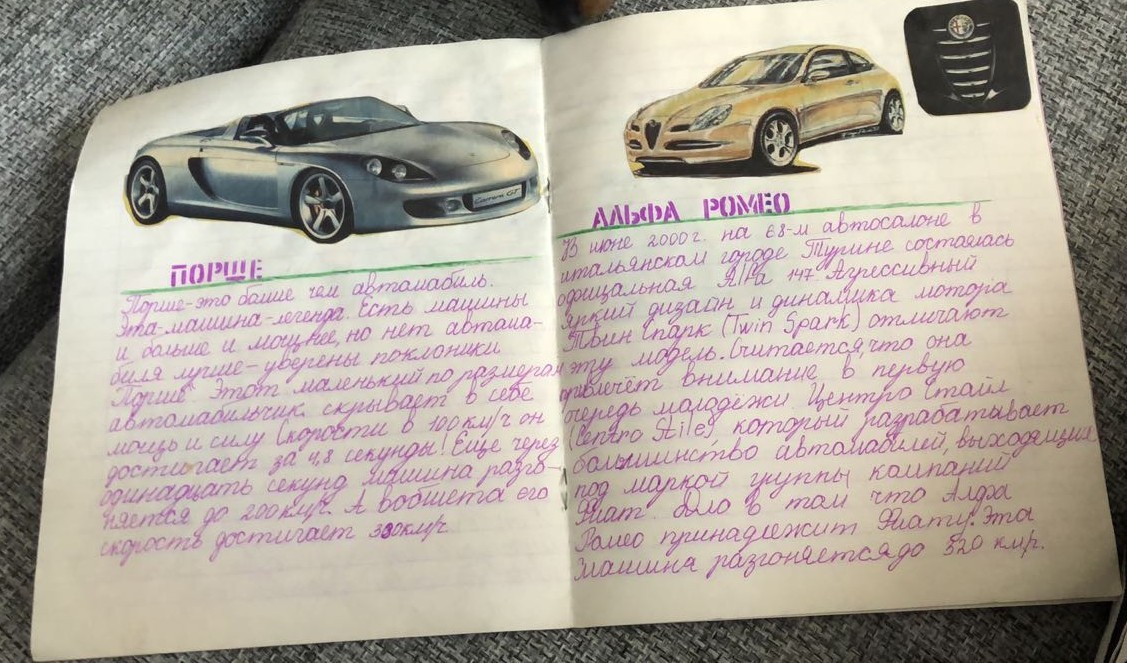 Carrera GT
ПОРШЕ
Порше-это больше чем автомобиль.
Эта-машина-легенда. Есть машины
и больше и мощнее, но нет автома-
биля лучше-уверены поклоники
"Порше" Этот маленький по размерам
автомобильчик скрывает в себе
мощь и силу Скорости в 100 км/ч он
достигает за 4,8 секунды! Еще через
одинадцать секунд машина разго-
няется до 200км/ч. А вобщета его
скорость достигает 330км/ч
АЛЬФА РОМЕО
В июне 2000г. на 68-м автосалоне в
итальянском городе Турине состоялась
официальная Alfa 147. Агрессивный
яркий дизайн и динамика мотора
Твин Спарк (Twin Spark) отличают
эту модель. Считается, что она
привлечёт внимание в первую
очередь молодёжи Центро Стайл
(Centro Stile), который разрабатывает
большинство автомобилей, выходящие
под маркой группы компаний
Фиат Дело в том что Алфа
Ромео принадлежит Фиату. Эта
машина разгоняется до 320 км/ч.